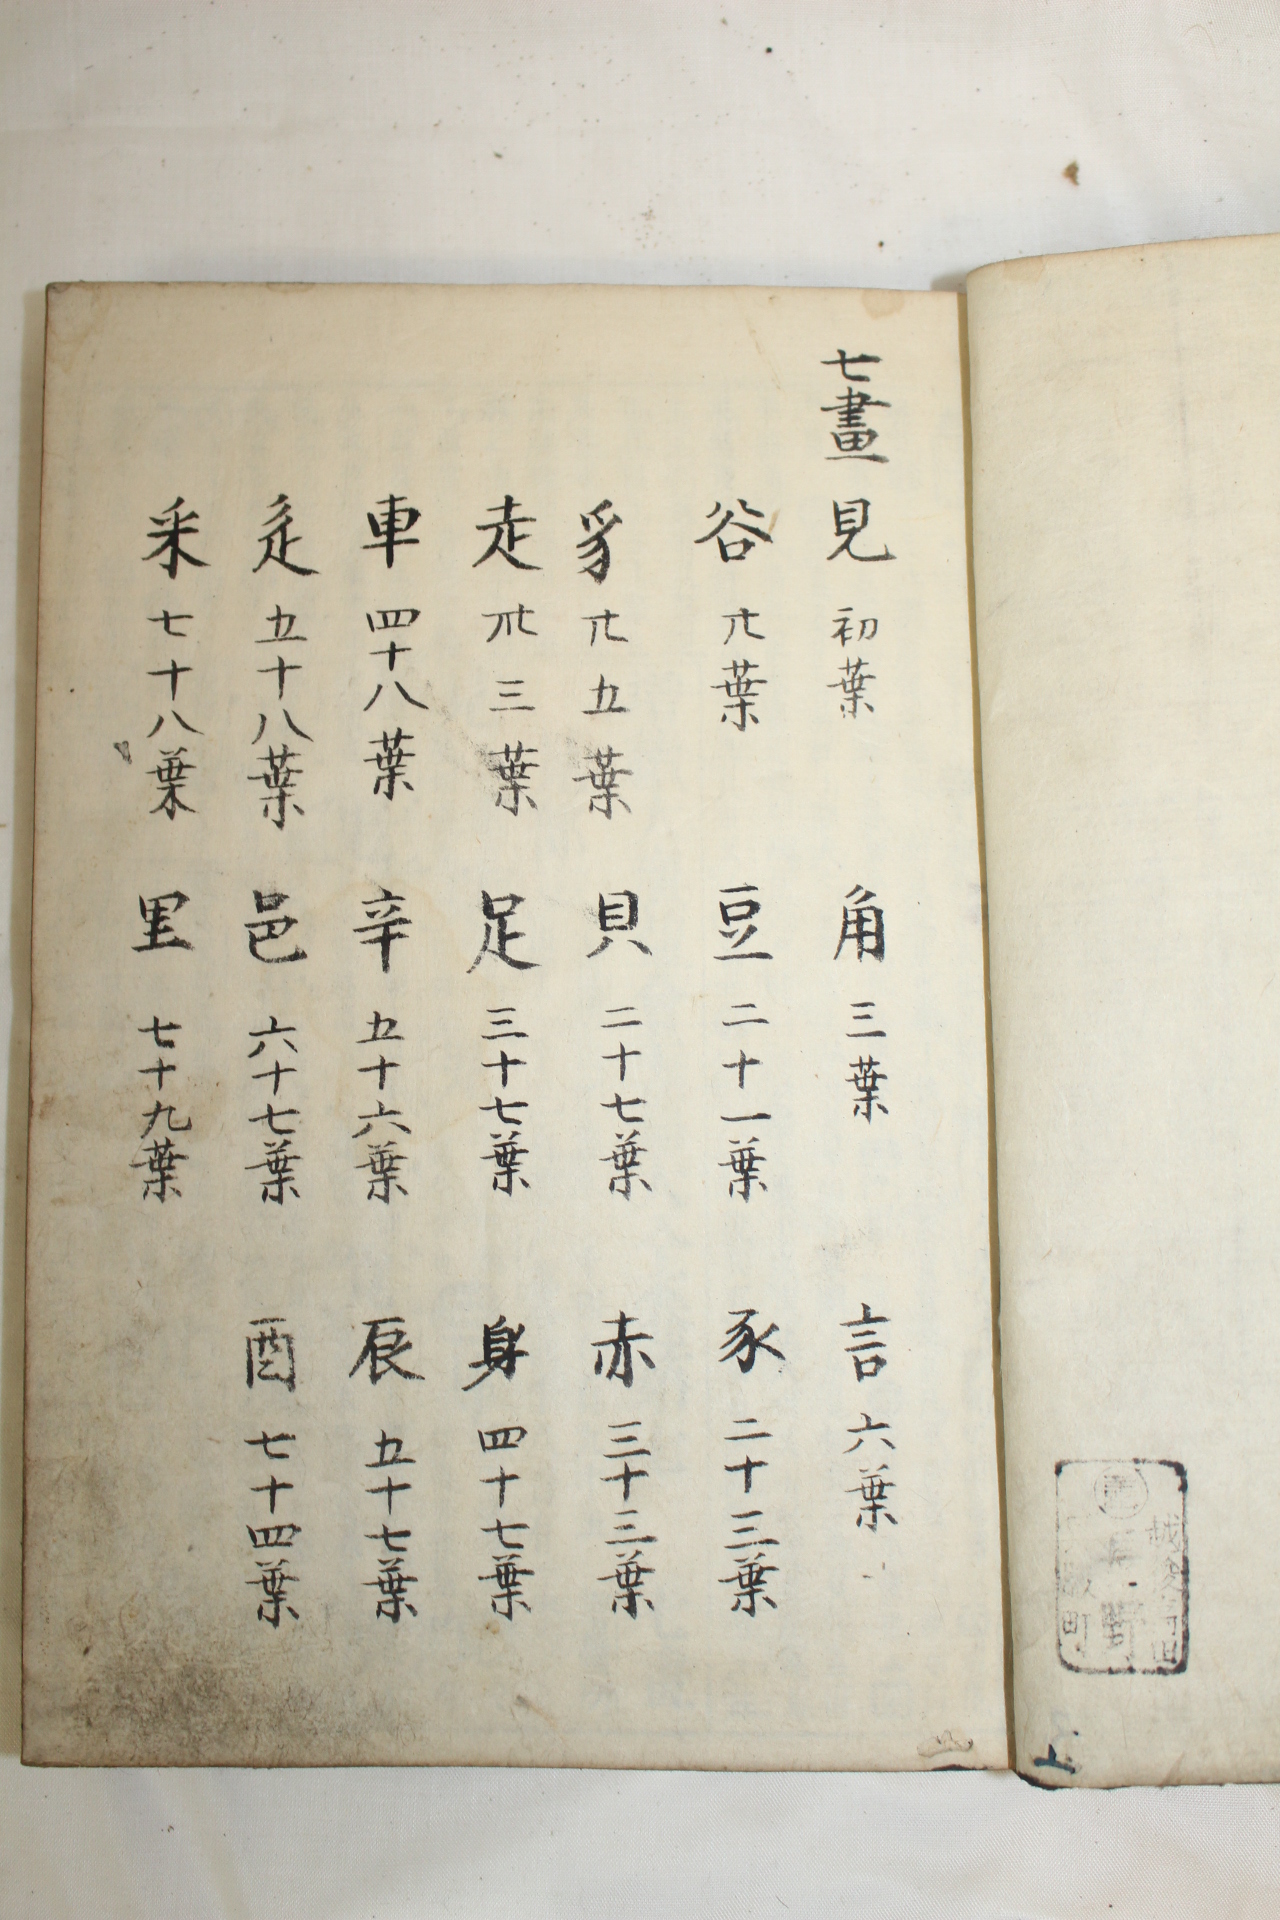 七畫 見 初葉 角 三葉 言 六葉
谷 廿葉 豆 二十一葉 豕 二十三葉
豸 廿五葉 貝 二十七葉 赤 三十三葉
走 卅三葉 足 三十七葉 身 四十七葉
車 四十八葉 辛 五十六葉 辰 五十七葉
辵 五十八葉 邑 六十七葉 酉 七十四葉
釆 七十八葉 里 七十九葉
町
上